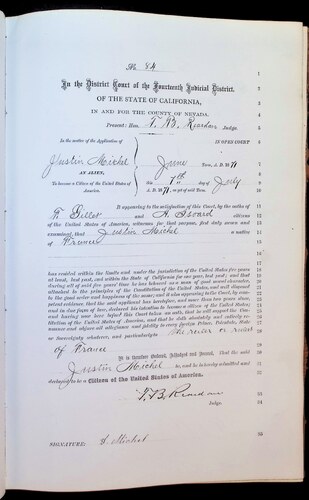 No. 84
In the District Court of the Fourteenth Judicial District,
OF THE STATE OF CALIFORNIA,
IN AND FOR THE COUNTY OF NEVADA.
Present: Hon. T. B. Reardan Judge.
In the matter of the Application of
Justin Michel
AN ALIEN,
To become a Citizen of the United States of America.
IN OPEN COURT
June Term, A. D. 1871
this 7th day of July
A. D. 1871, as yet of said Term.
It appearing to the satisfaction of this Court, by the oaths of
F. Gillet and A. Isoard citizens
of the United States of America, witnesses for that purpose, first duly sworn and
examined, that Justin Michel a native
of France
has resided within the limits and under the jurisdiction of the United States five years
at least, last past, and within the State of California for one year, last past; and that
during all of said five years' time he has behaved as a man of good moral character,
attached to the principles of the Constitution of the United States, and well disposed
to the good order and happiness of the same; and it also appearing to the Court, by com-
petent evidence, that the said applicant has heretofore, and more than two years since,
and in due form of law, declared his intention to become a citizen of the United States;
and having now here before this Court taken an oath, that he will support the Con-
stitution of the United States of America, and that he doth absolutely and entirely re-
nounce and abjure all allegiance and fidelity to every foreign Prince, Potentate, State
or Sovereignty whatever, and particularly to the ruler or rulers
of France
It is therefore Ordered, Adjudged and Decreed, That the said
Justin Michel be, and he is hereby admitted and
declared to be a Citizen of the United States of America.
T. B. Reardan
Judge.
SIGNATURE: J. Michel